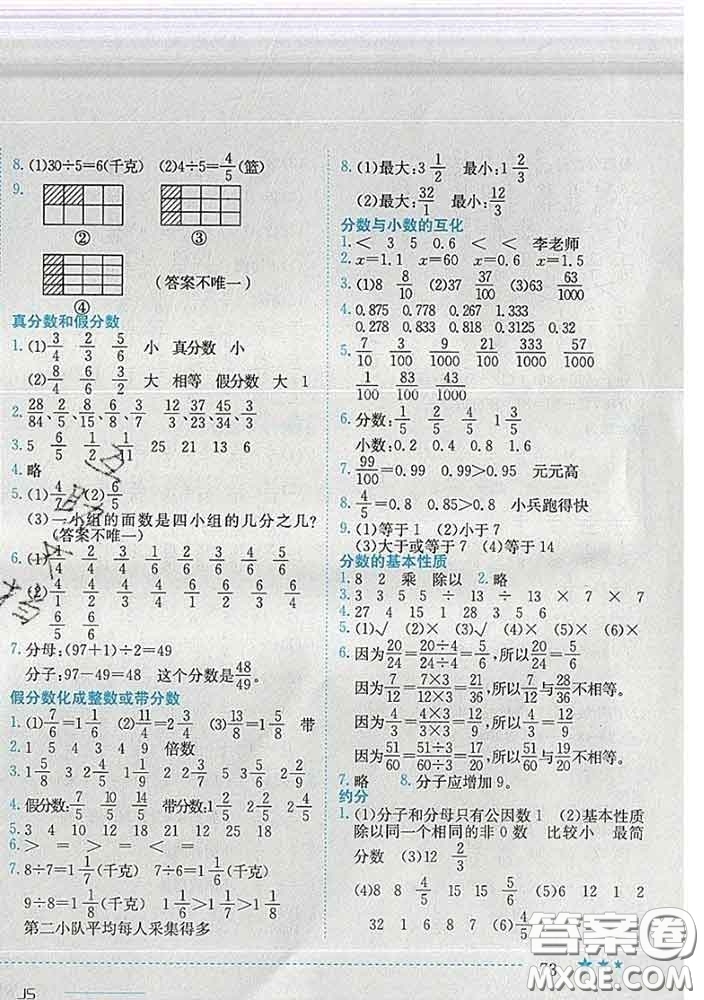 8. (1)30÷5=6(千克) (2)4÷5=4/5(篮)
9.
② ③
④ (答案不唯一)
真分数和假分数
1. (1)3/4 2/3 5/6 小 真分数 小
(2)8/4 6/6 3/2 大 相等 假分数 大 1
2. 28/84、2/5、8/15、6/8、3/7 12/3、37/23、45/34、3/3
3. 5 6/5 1/2 1/11 25 21 13 6
4. 略
5. (1)4/7 (2)6/5
(3)一小组的面数是四小组的几分之几?
(答案不唯一)
6. (1)1/4 2/4 3/4 1/5 2/5 3/5 4/5 1/6 5/6
(2)4/4 4/1 4/2 4/3 5/5 5/1 5/2 5/3 5/4 6/1
6/5 6/6
7. 分母:(97+1)÷2=49
分子:97-49=48 这个分数是48/49。
假分数化成整数或带分数
1. (1)7/6=1 1/6 (2)11/4=2 3/4 (3)13/8=1 5/8 带
2. 1 5 4 3 4 9 倍数
3. 1 5/8 4 3/4 2 2/5 1 2/9 2 3 5 2 2/9
4. 假分数:7/5 10/5 14/5 带分数:1 2/5 2 2/5 2 4/5
5. 3 4 10 18 2 6 3 12
6. > = > = < = >
7. 8÷7=1 1/7(千克) 7÷6=1 1/6(千克)
9÷8=1 1/8(千克) 1 1/6>1 1/7>1 1/8
第二小队平均每人采集得多
8. (1)最大:3 1/2 最小:1 2/3
(2)最大:32/1 最小:12/3
分数与小数的互化
1. < 3 5 0.6 < < 李老师
2. x=1.1 x=60 x=0.6 x=1.5
3. (1)8 8/10 (2)37 37/100 (3)63 63/1000
4. 0.875 0.778 0.267 1.333
0.278 0.833 0.818 0.32
5. 7/10 3/100 9/10 21/100 333/1000 57/1000
1/100 83/100 43/1000
6. 分数:1/5 2/5 4/5 1 3/5
小数:0.2 0.4 0.8 1.6
7. 99/100=0.99 0.99>0.98 元元高
8. 4/5=0.8 0.85>0.8 小兵跑得快
9. (1)等于1 (2)小于7
(3)大于或等于7 (4)等于14
分数的基本性质
1. 8 2 乘 除以 2. 略
3. 3 3 5 5 ÷ 13 ÷ 13 × 7 × 7
4. 27 4 15 1 28 3 5 6
5. (1)√ (2)× (3)√ (4)× (5)× (6)×
6. 因为20/24=20÷4/24÷4=5/6,所以20/24与5/6相等。
因为7/12=7×3/12×3=21/36,所以7/12与28/36不相等。
因为4/3=4×3/3×3=12/9,所以4/3与12/9相等。
因为51/60=51÷3/60÷3=17/20,所以51/60与19/20不相等。
7. 略 8. 分子应增加9。
约分
1. (1)分子和分母只有公因数1 (2)基本性质
除以同一个相同的非0数 比较小 最简
分数 (3)12 2/3
(4)8 8 4/5 15 15 5/7 6 12 1 2
32 1 6 8 1 7 2 4/5
答案圈
MXQE.COM
J5